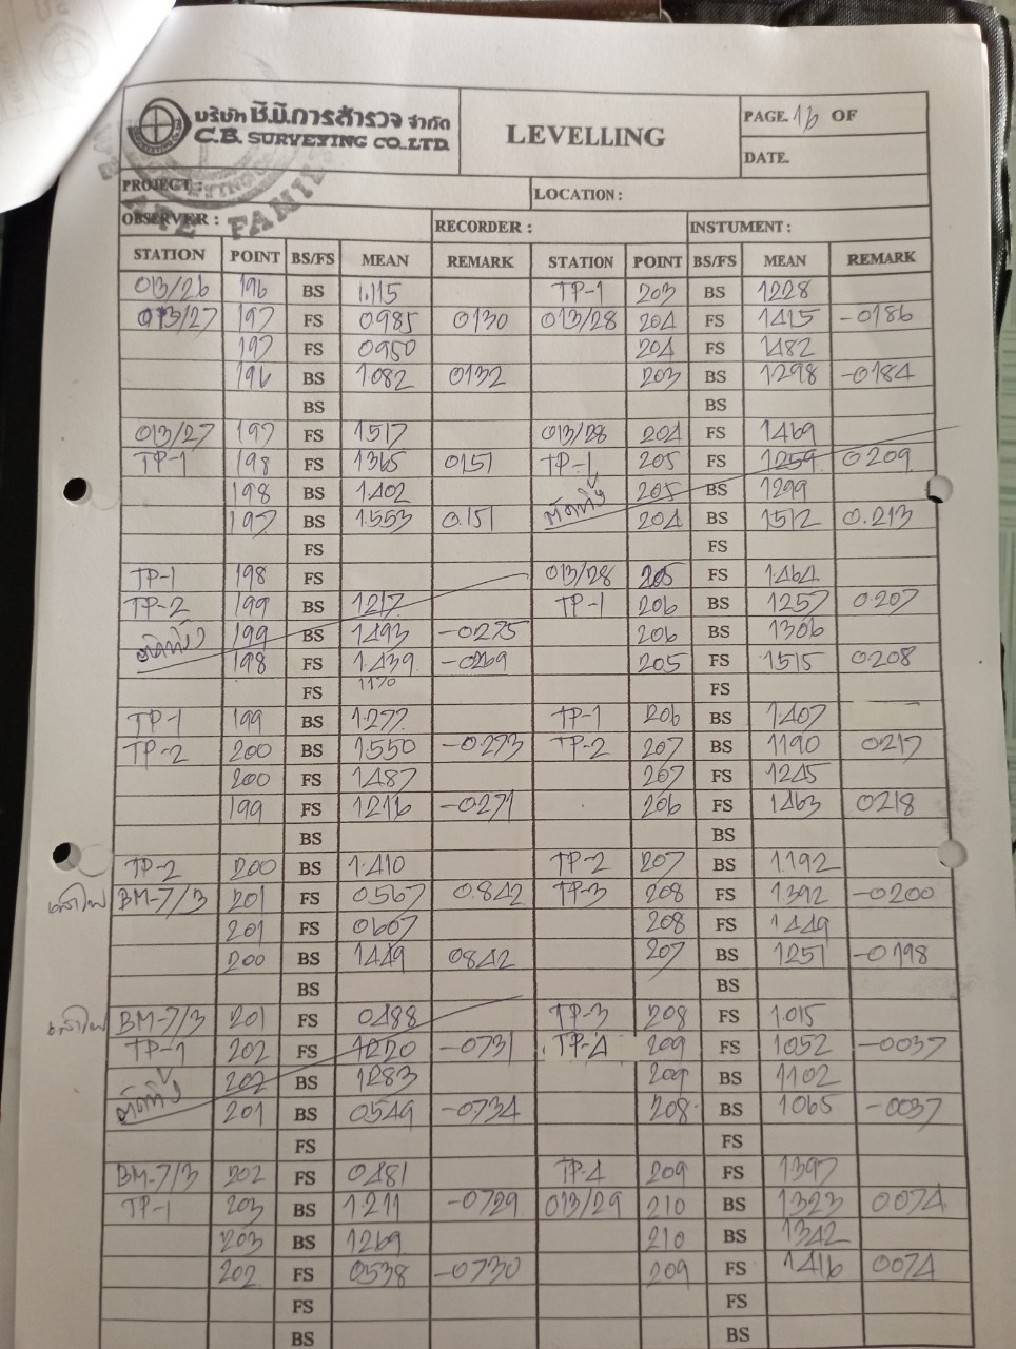 บริษัท ซี.บี.การสำรวจ จำกัด
C.B. SURVEYING CO.,LTD.
LEVELLING
PAGE. 16 OF
DATE.
PROJECT :
LOCATION :
OBSERVER :
RECORDER :
INSTUMENT :
STATION POINT BS/FS MEAN REMARK STATION POINT BS/FS MEAN REMARK
013/26 196 BS 1.115 TP-1 203 BS 1228
013/27 197 FS 0985 0130 013/28 204 FS 1415 -0186
197 FS 0950 204 FS 1482
196 BS 1082 0132 203 BS 1298 -0184
BS BS
013/27 197 FS 1517 013/28 204 FS 1469
TP-1 198 FS 1365 0151 TP-1 205 FS 1259 0209
198 BS 1402 ตัดทิ้ง 205 BS 1299
197 BS 1.553 0.151 204 BS 1512 0.213
FS FS
TP-1 198 FS 013/28 205 FS 1464
TP-2 199 BS 1217 TP-1 206 BS 1257 0207
ตัดทิ้ง 199 BS 1493 -0275 206 BS 1306
198 FS 1.439 -0269 205 FS 1515 0208
FS 1170 FS
TP-1 199 BS 1.277 TP-1 206 BS 1.407
TP-2 200 BS 1550 -0273 TP-2 207 BS 1190 0217
200 FS 1487 207 FS 1245
199 FS 1216 -0271 206 FS 1463 0218
BS BS
TP-2 200 BS 1.410 TP-2 207 BS 1192
เสาไฟ BM-7/3 201 FS 0567 0.842 TP-3 208 FS 1392 -0200
201 FS 0607 208 FS 1449
200 BS 1449 0842 207 BS 1251 -0198
BS BS
เสาไฟ BM-7/3 201 FS 0488 TP-3 208 FS 1.015
TP-1 202 FS 1220 -0731 TP-4 209 FS 1052 -0037
ตัดทิ้ง 202 BS 1283 209 BS 1102
201 BS 0549 -0734 208 BS 1065 -0037
FS FS
BM-7/3 202 FS 0481 TP-4 209 FS 1397
TP-1 203 BS 1211 -0729 013/29 210 BS 1323 0074
203 BS 1269 210 BS 1342
202 FS 0538 -0730 209 FS 1416 0074
FS FS
BS BS